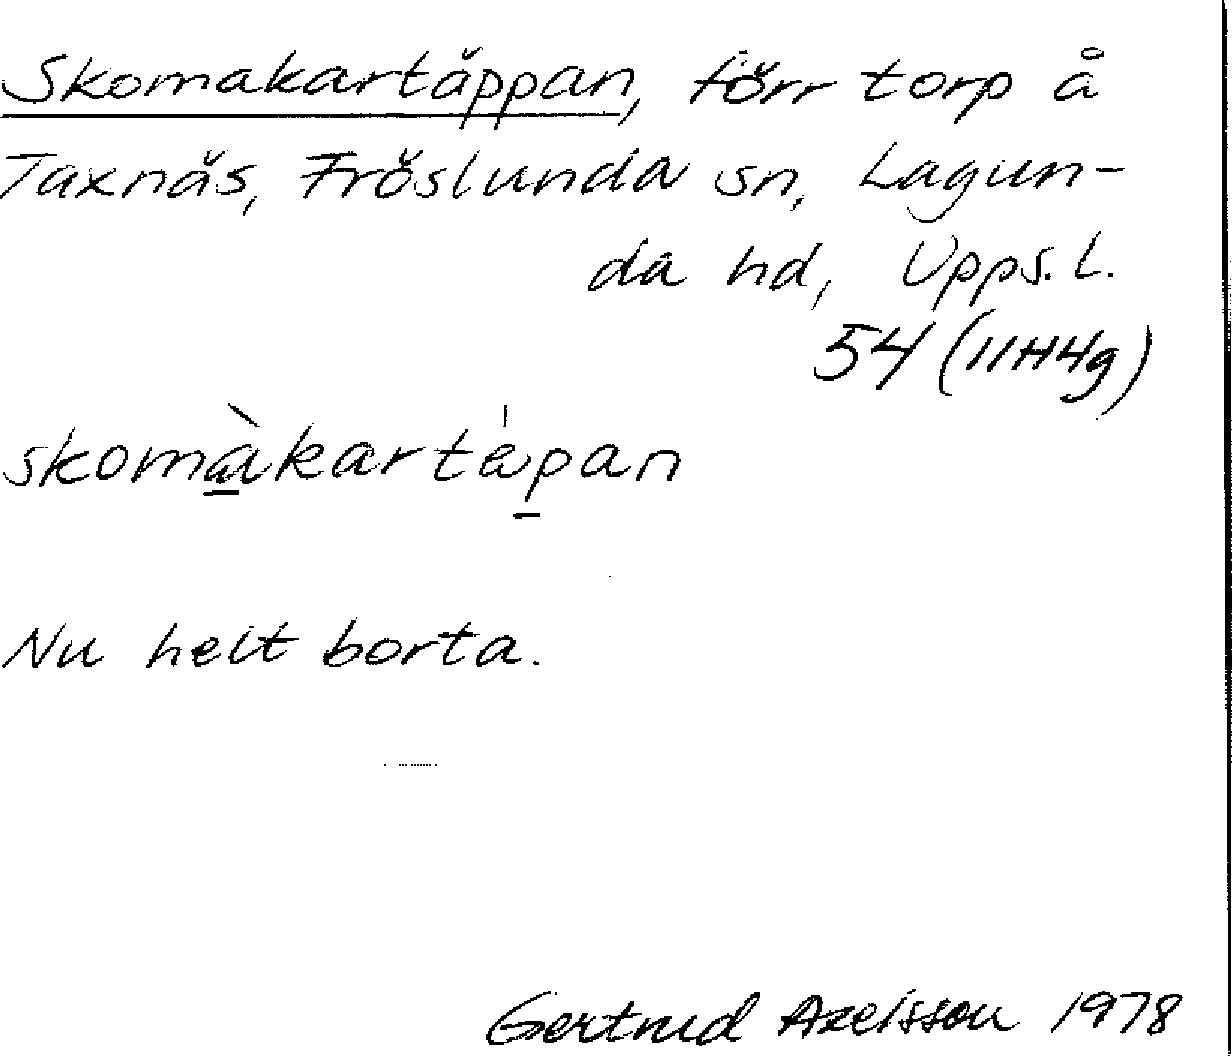 Skomakartäppan, förr torp å
Taxnäs, Fröslunda sn, Lagun-
da hd, Upps. l.
54 (11H4g)
skomàkartä́pan
Nu helt borta.
Gertrud Axelsson 1978